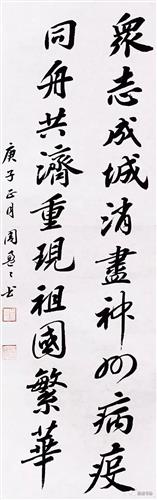 眾志成城消盡神州病疫
同舟共濟重現祖國繁華
庚子正月周魯之书